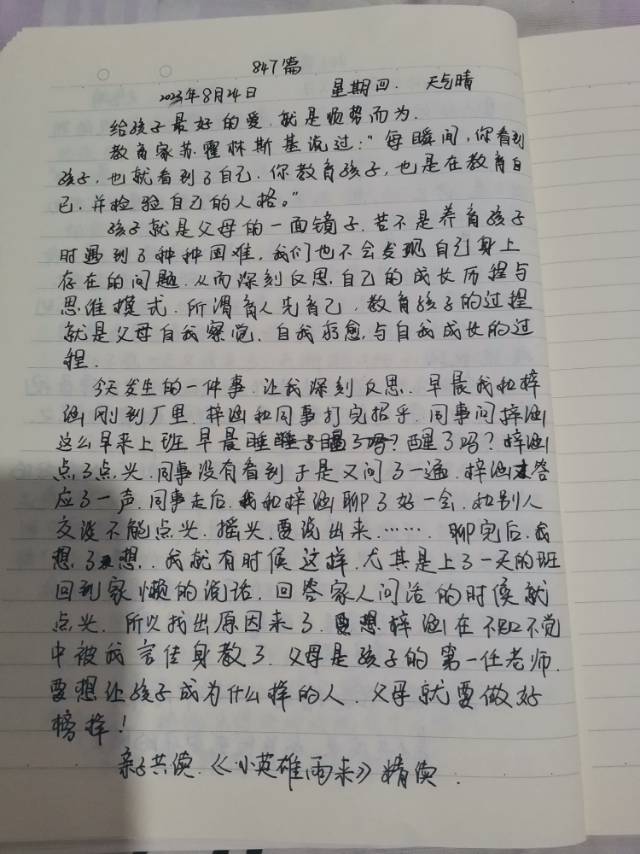 847篇
2023年8月24日 星期四. 天气晴
给孩子最好的爱.就是顺势而为.
教育家苏霍林斯基说过:“每瞬间,你看到
孩子,也就看到了自己.你教育孩子,也是在教育自
己,并检验自己的人格。”
孩子就是父母的一面镜子.若不是养育孩子
时遇到了种种困难,我们也不会发现自己身上
存在的问题.从而深刻反思.自己的成长历程与
思维模式.所谓育人先育己,教育孩子的过程
就是父母自我察觉.自我疗愈.与自我成长的过
程.
今天发生的一件事.让我深刻反思.早晨我和梓
涵刚到厂里.梓涵和同事打完招乎.同事问梓涵
这么早来上班早晨睡醒了吗?醒了吗?梓涵
点了点头.同事没有看到于是又问了一遍.梓涵才答
应了一声.同事走后.我和梓涵聊了好一会.和别人
交谈不能点头.摇头.要说出来……聊完后.我
想了想..我就有时候这样.尤其是上了一天的班
回到家懒的说话.回答家人问话的时候就
点头.所以找出原因来了.要想梓涵在不知不觉
中被我言传身教了.父母是孩子的第一任老师.
要想让孩子成为什么样的人.父母就要做好
榜样!
亲子共读.《小英雄雨来》精读.